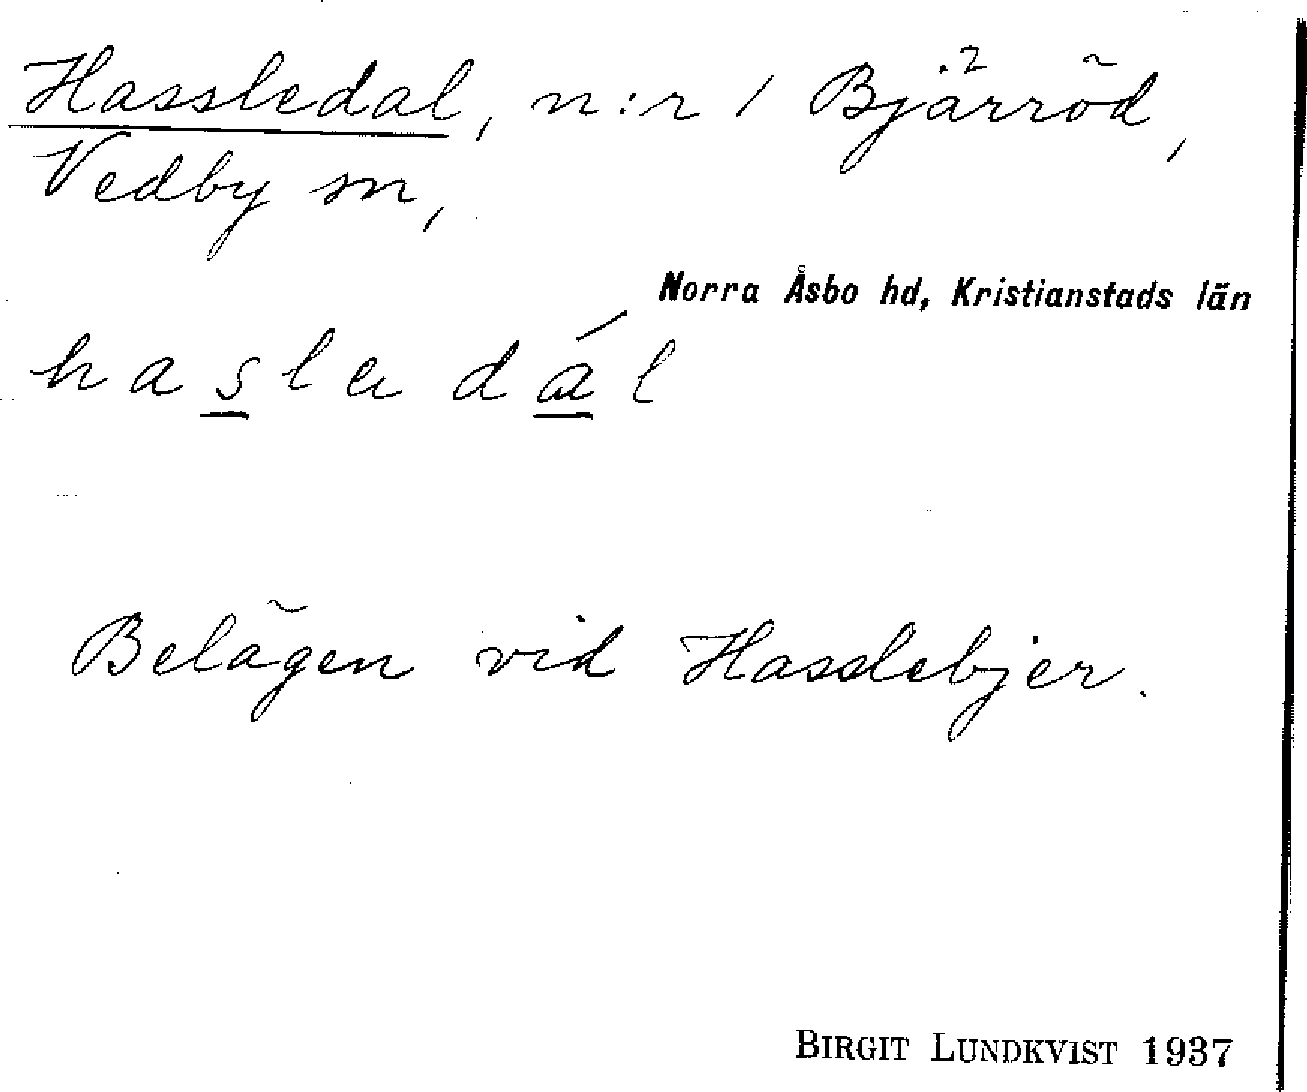 Hassledal, n:r 1 Bjärröd,
Vedby sn,
Norra Åsbo hd, Kristianstads län
hasladál
Belägen vid Hasslebjer.
BIRGIT LUNDKVIST 1937